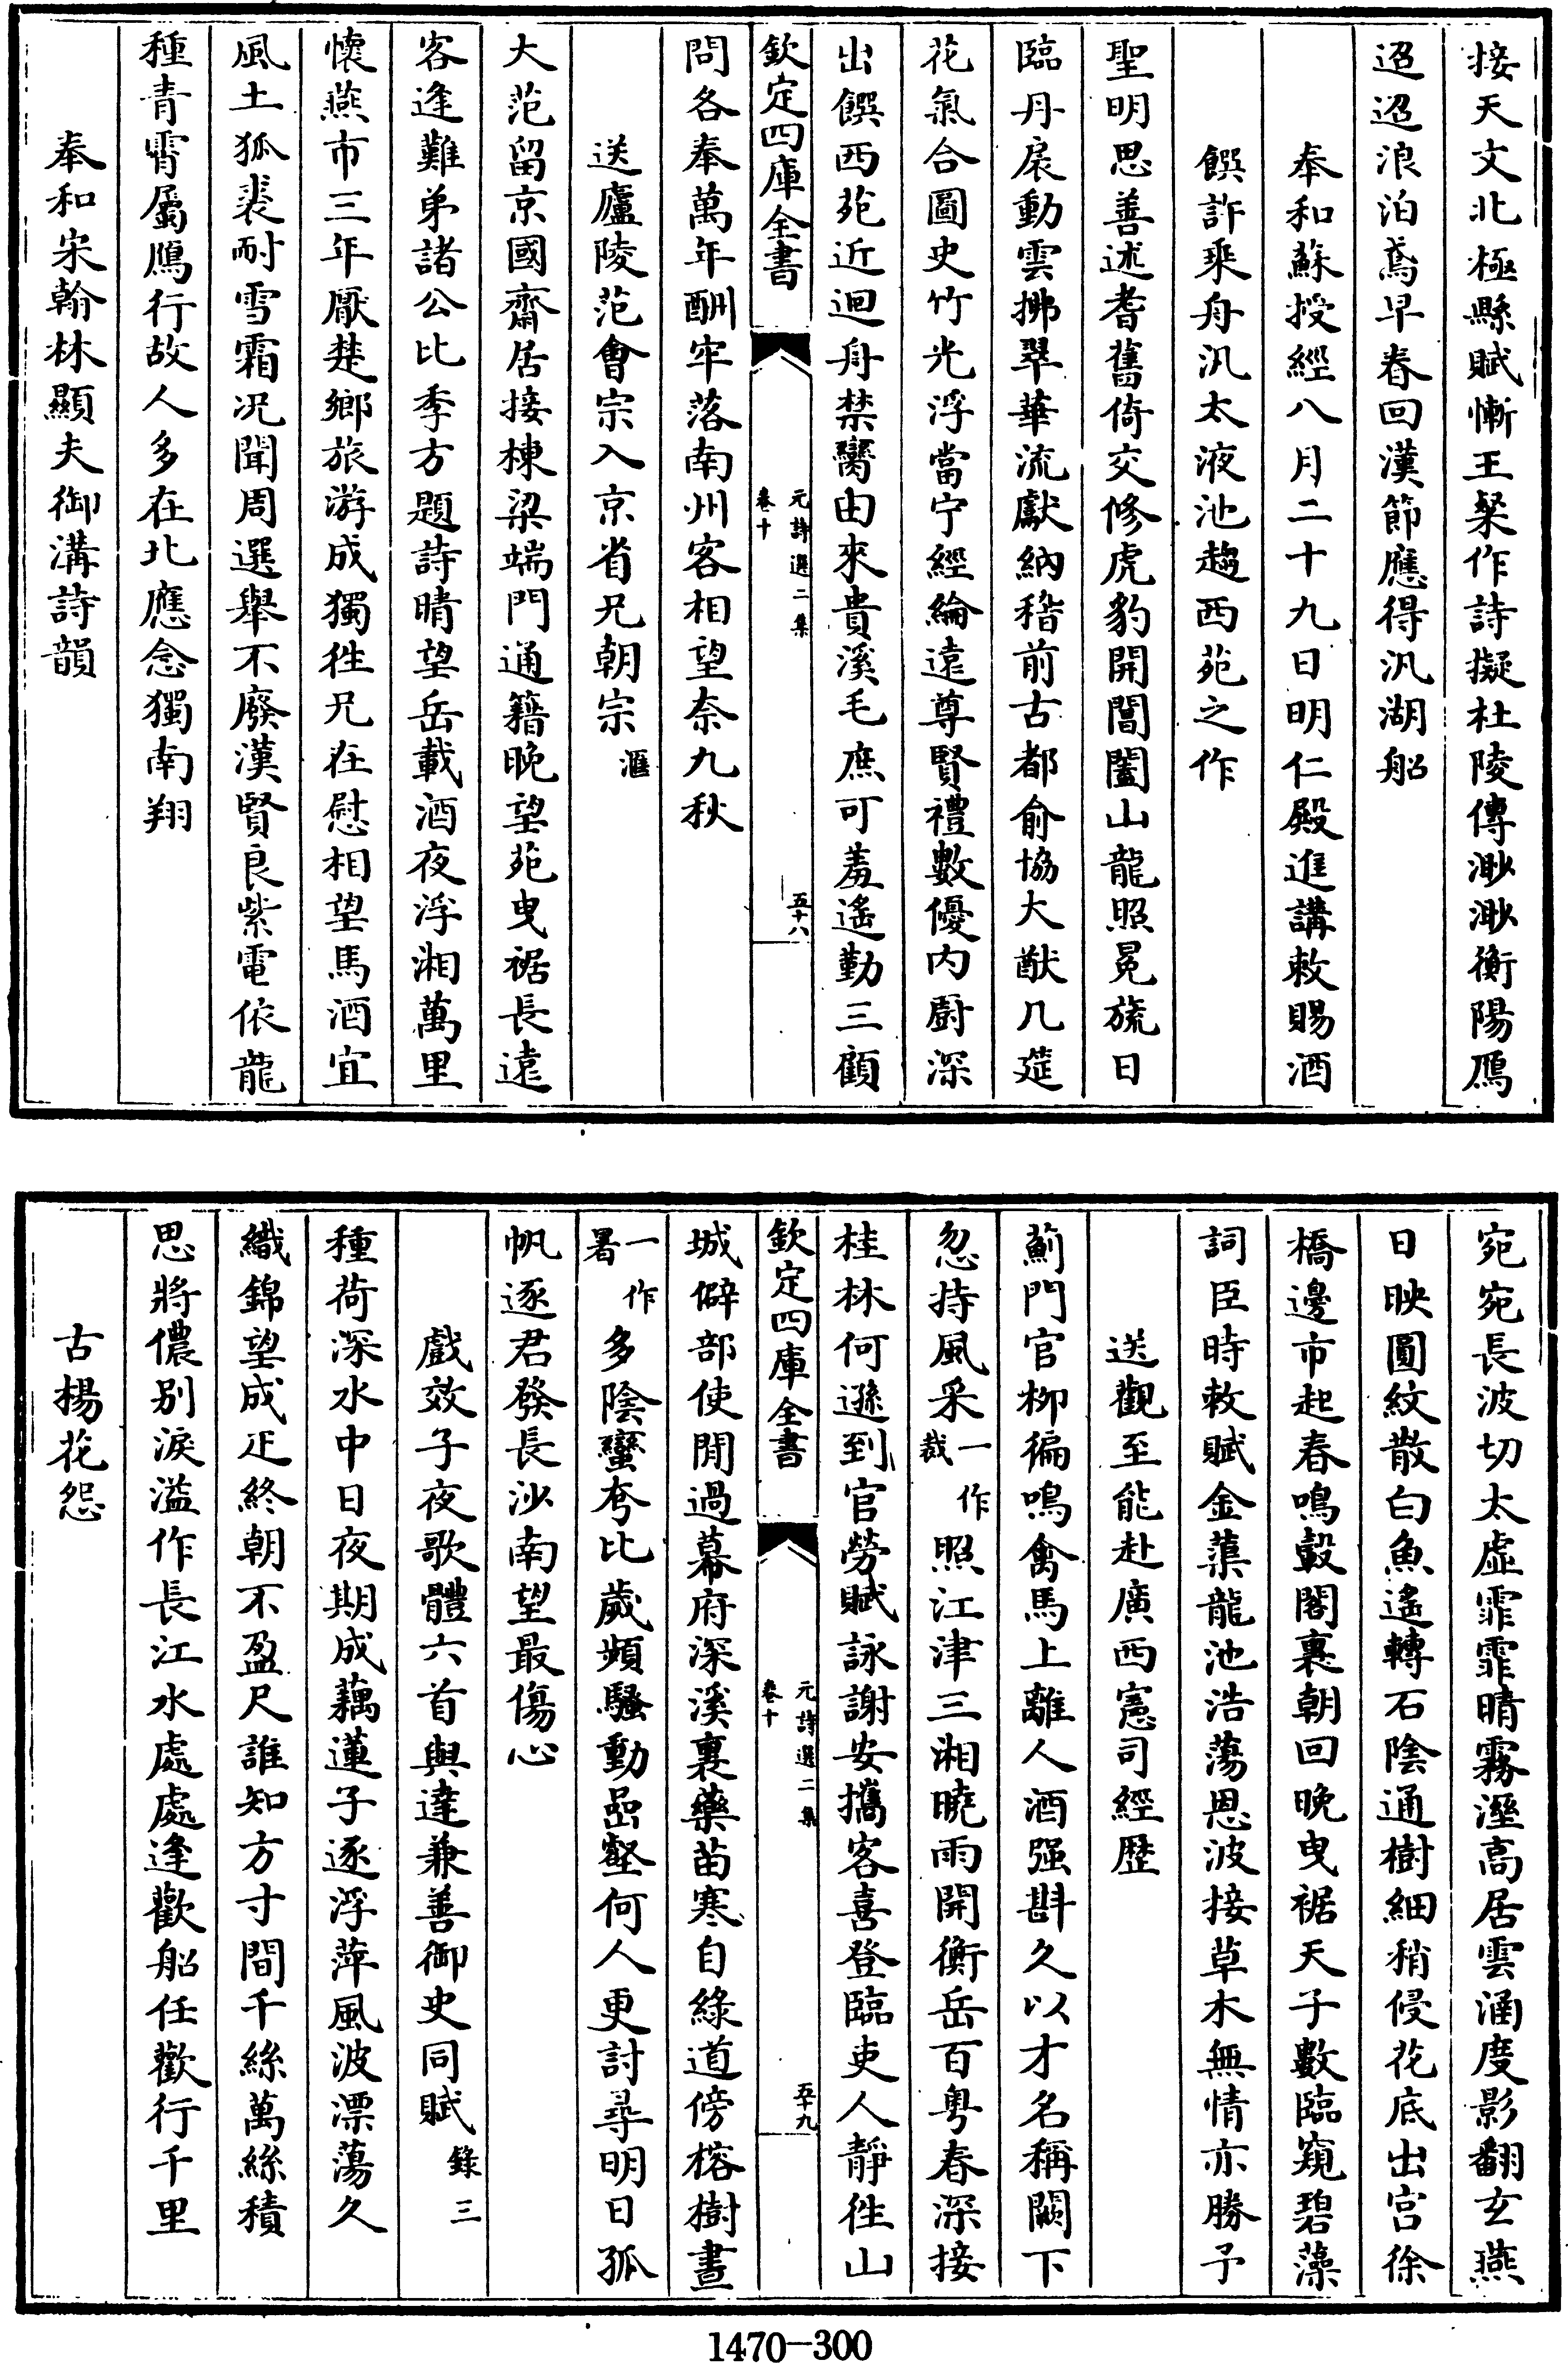 接天文北極縣賦慚王粲作詩擬杜陵傳渺渺衡陽鴈
迢迢浪泊鳶早春回漢節應得汎湖船
奉和蘇授經八月二十九日明仁殿進講敕賜酒
饌許乘舟汎太液池趨西苑之作
聖明思善述耆舊倚交修虎豹開閶闔山龍照冕旒日
臨丹扆動雲拂翠華流獻納稽前古都俞協大猷几筵
花氣合圖史竹光浮當宁經綸遠尊賢禮數優內厨深
出饌西苑近迴舟禁臠由來貴溪毛庶可羞遙勤三顧
欽定四庫全書
元詩選二集
卷十
五十八
問各奉萬年酬牢落南州客相望奈九秋
送廬陵范會宗入京省兄朝宗滙
大范留京國齋居接棟梁端門通籍晚望苑曳裾長遠
客逢難弟諸公比季方題詩晴望岳載酒夜浮湘萬里
懷燕市三年厭楚鄉旅游成獨徃兄在慰相望馬酒宜
風土狐裘耐雪霜况聞周選舉不廢漢賢良紫電依龍
種青霄屬鴈行故人多在北應念獨南翔
奉和宋翰林顯夫御溝詩韻
宛宛長波切太虛霏霏晴霧溼高居雲涵度影翻玄燕
日映圓紋散白魚遙轉石陰通樹細稍侵花底出宮徐
橋邊市起春鳴轂閣裏朝回晚曳裾天子數臨窺碧藻
詞臣時敕賦金蕖龍池浩蕩恩波接草木無情亦勝予
送觀至能赴廣西憲司經歷
薊門官柳徧鳴禽馬上離人酒强斟久以才名稱闕下
忽持風采一作裁照江津三湘曉雨開衡岳百粤春深接
桂林何遜到官勞賦詠謝安攜客喜登臨吏人靜徃山
欽定四庫全書
元詩選二集
卷十
五十九
城僻部使閒過幕府深溪裏藥苗寒自綠道傍榕樹晝
一作暑多陰蠻夸比歲頻騷動嵒壑何人更討尋明日孤
帆逐君發長沙南望最傷心
戲效子夜歌體六首與達兼善御史同賦錄三
種荷深水中日夜期成藕蓮子逐浮萍風波漂蕩久
織錦望成疋終朝不盈尺誰知方寸間千絲萬絲積
思將儂别淚溢作長江水處處逢歡船任歡行千里
古楊花怨
1470-300